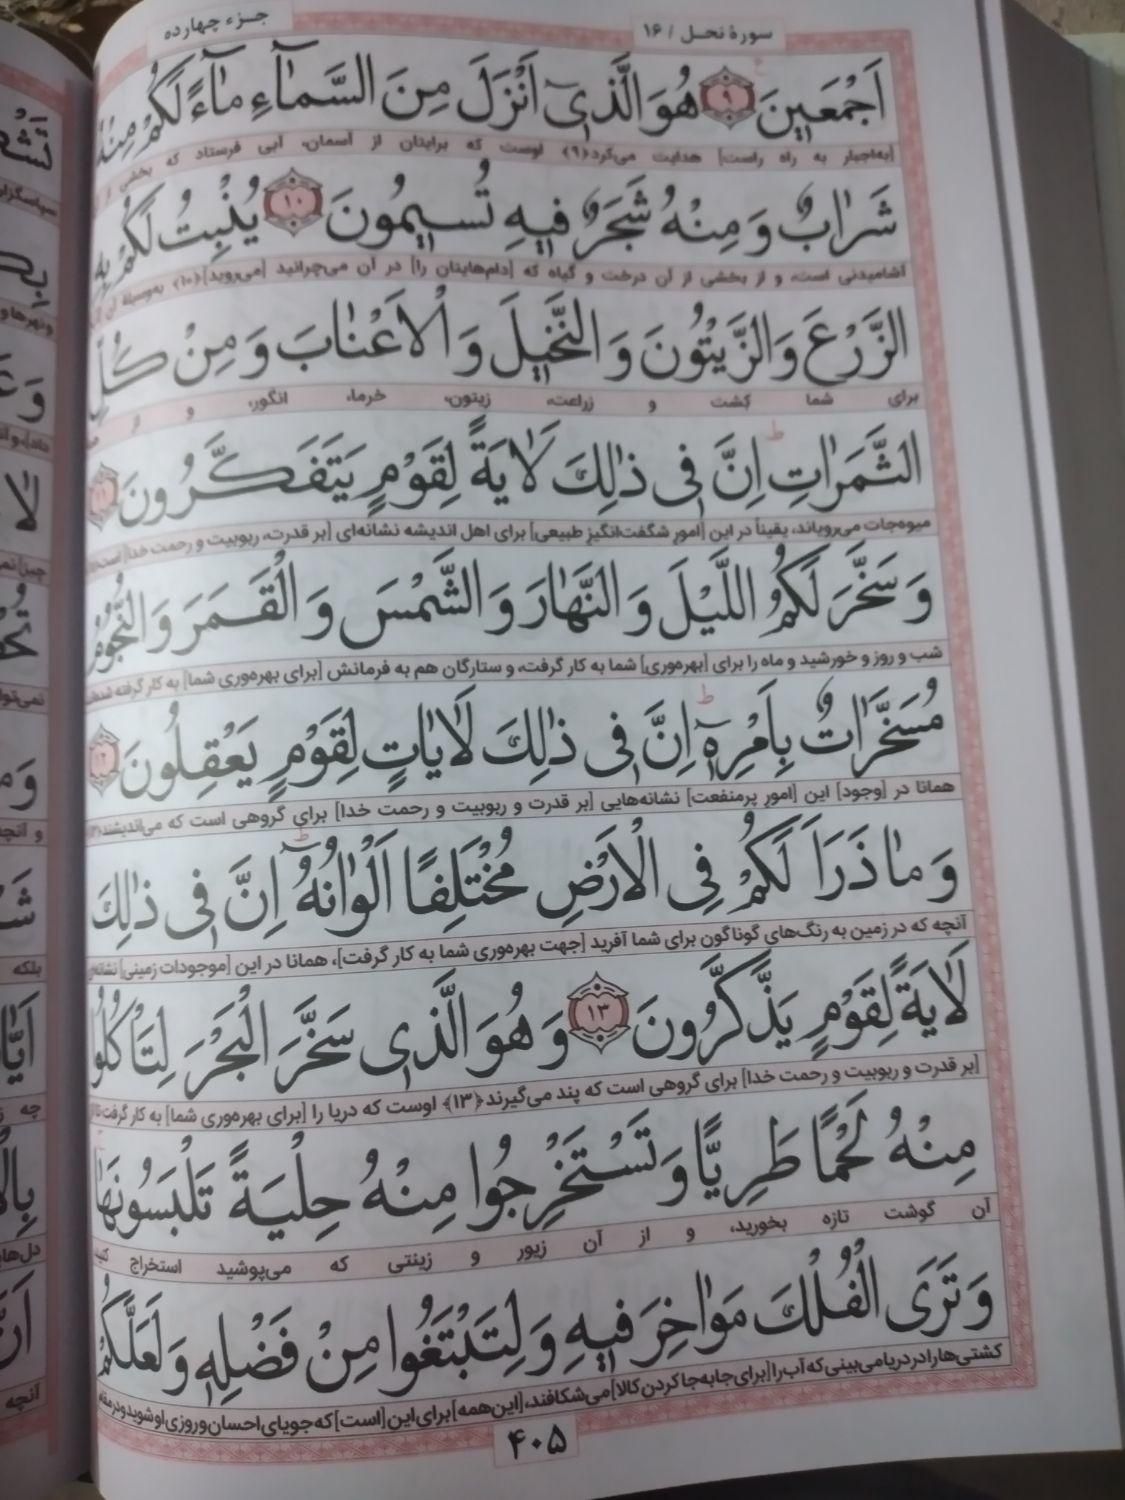 سورهٔ نحل / ۱۶
جزء چهارده
اَجْمَعينَ ﴿۹﴾ هُوَ الَّذي اَنْزَلَ مِنَ السَّمآءِ مآءً لَكُمْ مِنْهُ
[به‌اجبار به راه راست] هدایت می‌کرد﴿۹﴾ اوست که برایتان از آسمان، آبی فرستاد که بخشی از
شَرابٌ وَ مِنْهُ شَجَرٌ فيهِ تُسيمُونَ ﴿۱۰﴾ يُنْبِتُ لَكُمْ بِهِ
آشامیدنی است، و از بخشی از آن درخت و گیاه که [دام‌هایتان را] در آن می‌چرانید [می‌روید]﴿۱۰﴾ به‌وسیلهٔ آن
الزَّرْعَ وَ الزَّيْتُونَ وَ النَّخيلَ وَ الْاَعْنابَ وَ مِنْ كُلِّ
برای شما کِشت و زراعت، زیتون، خرما، انگور، و از
الثَّمَراتِ اِنَّ في ذٰلِكَ لَاٰيَةً لِقَوْمٍ يَتَفَكَّرُونَ ﴿۱۱﴾
میوه‌جات می‌رویاند، یقیناً در این [امور شگفت‌انگیز طبیعی] برای اهل اندیشه نشانه‌ای [بر قدرت، ربوبیت و رحمت خدا] است
وَ سَخَّرَ لَكُمُ اللَّيْلَ وَ النَّهارَ وَ الشَّمْسَ وَ الْقَمَرَ وَ النُّجُومُ
شب و روز و خورشید و ماه را برای [بهره‌وری] شما به کار گرفت، و ستارگان هم به فرمانش [برای بهره‌وری شما] به کار گرفته شده‌اند
مُسَخَّراتٌ بِاَمْرِهٖ اِنَّ في ذٰلِكَ لَاٰياتٍ لِقَوْمٍ يَعْقِلُونَ ﴿۱۲﴾
همانا در [وجود] این [امور پرمنفعت] نشانه‌هایی [بر قدرت و ربوبیت و رحمت خدا] برای گروهی است که می‌اندیشند﴿۱۲﴾
وَ ما ذَرَاَ لَكُمْ فِي الْاَرْضِ مُخْتَلِفًا اَلْوانُهُ اِنَّ في ذٰلِكَ
آنچه که در زمین به رنگ‌های گوناگون برای شما آفرید [جهت بهره‌وری شما به کار گرفت]، همانا در این [موجودات زمینی] نشانه‌ای
لَاٰيَةً لِقَوْمٍ يَذَّكَّرُونَ ﴿۱۳﴾ وَ هُوَ الَّذي سَخَّرَ الْبَحْرَ لِتَاْكُلُوا
[بر قدرت و ربوبیت و رحمت خدا] برای گروهی است که پند می‌گیرند﴿۱۳﴾ اوست که دریا را [برای بهره‌وری شما] به کار گرفت تا از
مِنْهُ لَحْمًا طَرِيًّا وَ تَسْتَخْرِجُوا مِنْهُ حِلْيَةً تَلْبَسُونَها
آن گوشت تازه بخورید، و از آن زیور و زینتی که می‌پوشید استخراج کنید
وَ تَرَى الْفُلْكَ مَواخِرَ فيهِ وَ لِتَبْتَغُوا مِنْ فَضْلِهٖ وَ لَعَلَّكُمْ
کشتی‌ها را در دریا می‌بینی که آب را [برای جابه‌جا کردن کالا] می‌شکافند، [این همه] برای این [است] که جویای احسان و روزی او شوید و در مقام
۴۰۵